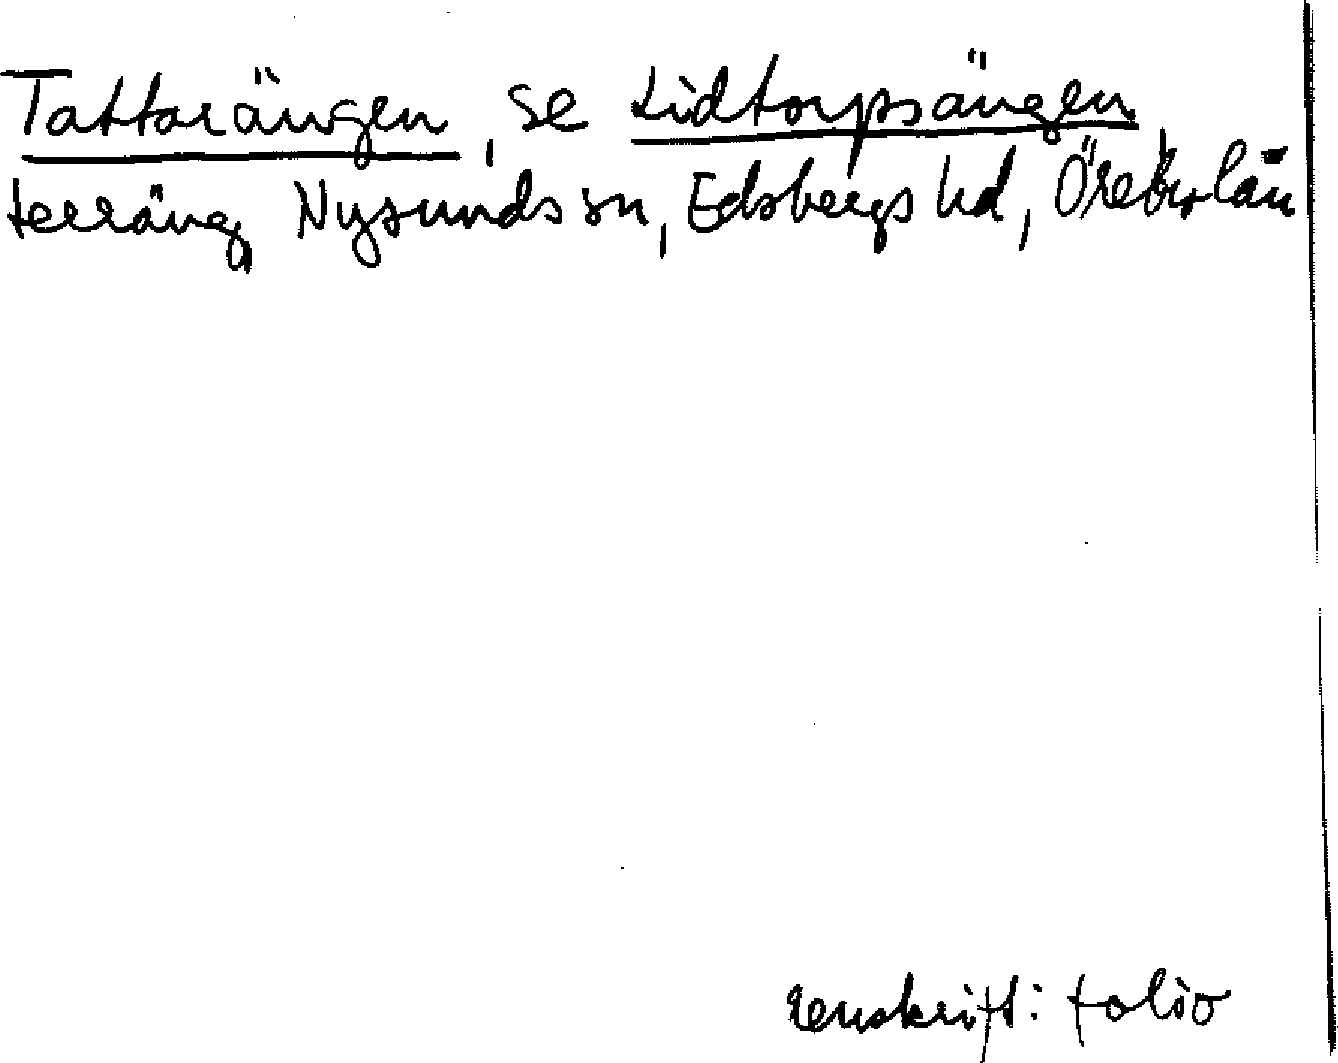 Tattarängen, se Lidtorpsängen
terräng, Nysunds sn, Edsbergs hd, Örebro län
renskrift: folio